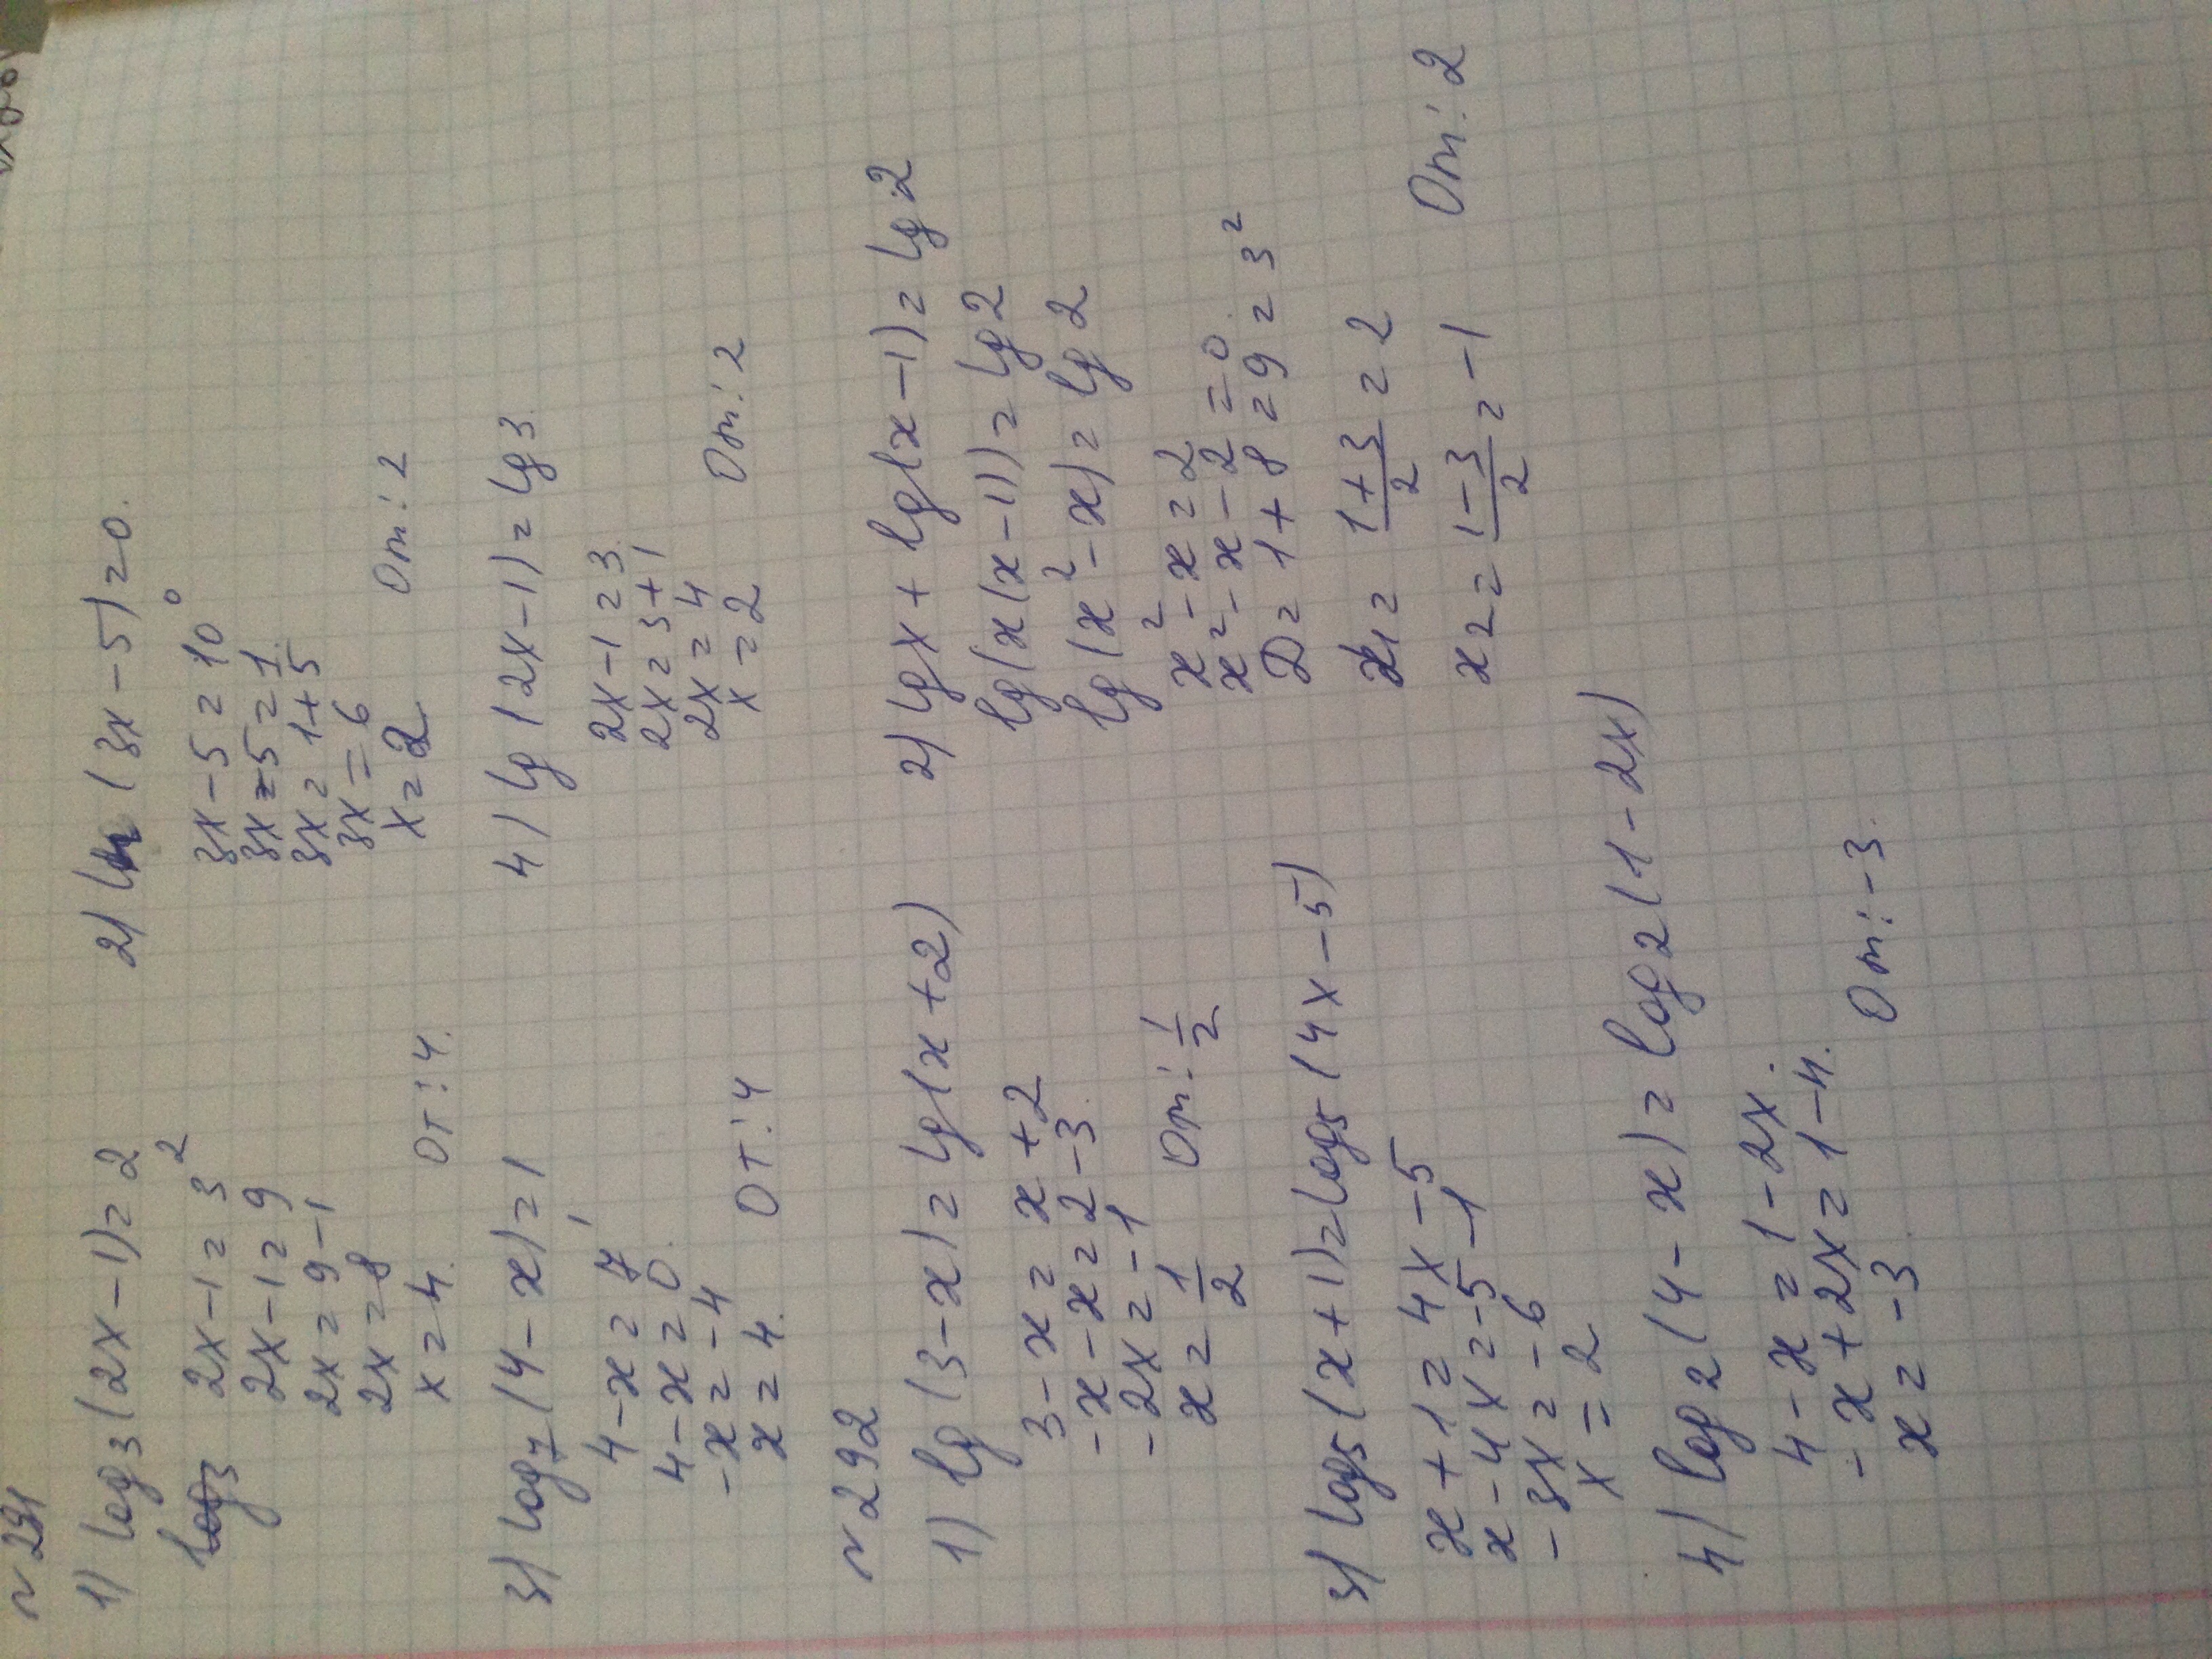 ~ 291
1) log3 (2x-1)=2
log3
2x-1=3²
2x-1=9
2x=9-1
2x=8
x=4.
От:4.
2) (3x-5)=0.
3x-5=10°
3x-5=1
3x=1+5
3x=6
x=2
От:2
3) log7 (4-x)=1
4-x=7¹
4-x=0.
-x=-4
x=4.
От:4
4) lg(2x-1)=lg3.
2x-1=3.
2x=3+1
2x=4
x=2
От:2
~ 292
1) lg(3-x)=lg(x+2)
3-x=x+2
-x-x=2-3.
-2x=-1
x=1/2
От:1/2
2) lgx+lg(x-1)=lg2
lg(x(x-1))=lg2
lg(x²-x)=lg2
x²-x=2
x²-x-2=0.
D=1+8=9=3²
x1=1+3/2=2
x2=1-3/2=-1
От:2
3) log5(x+1)=log5(4x-5)
x+1=4x-5
x-4x=-5-1
-3x=-6
x=2
4) log2(4-x)=log2(1-2x)
4-x=1-2x.
-x+2x=1-4.
x=-3
От:-3.